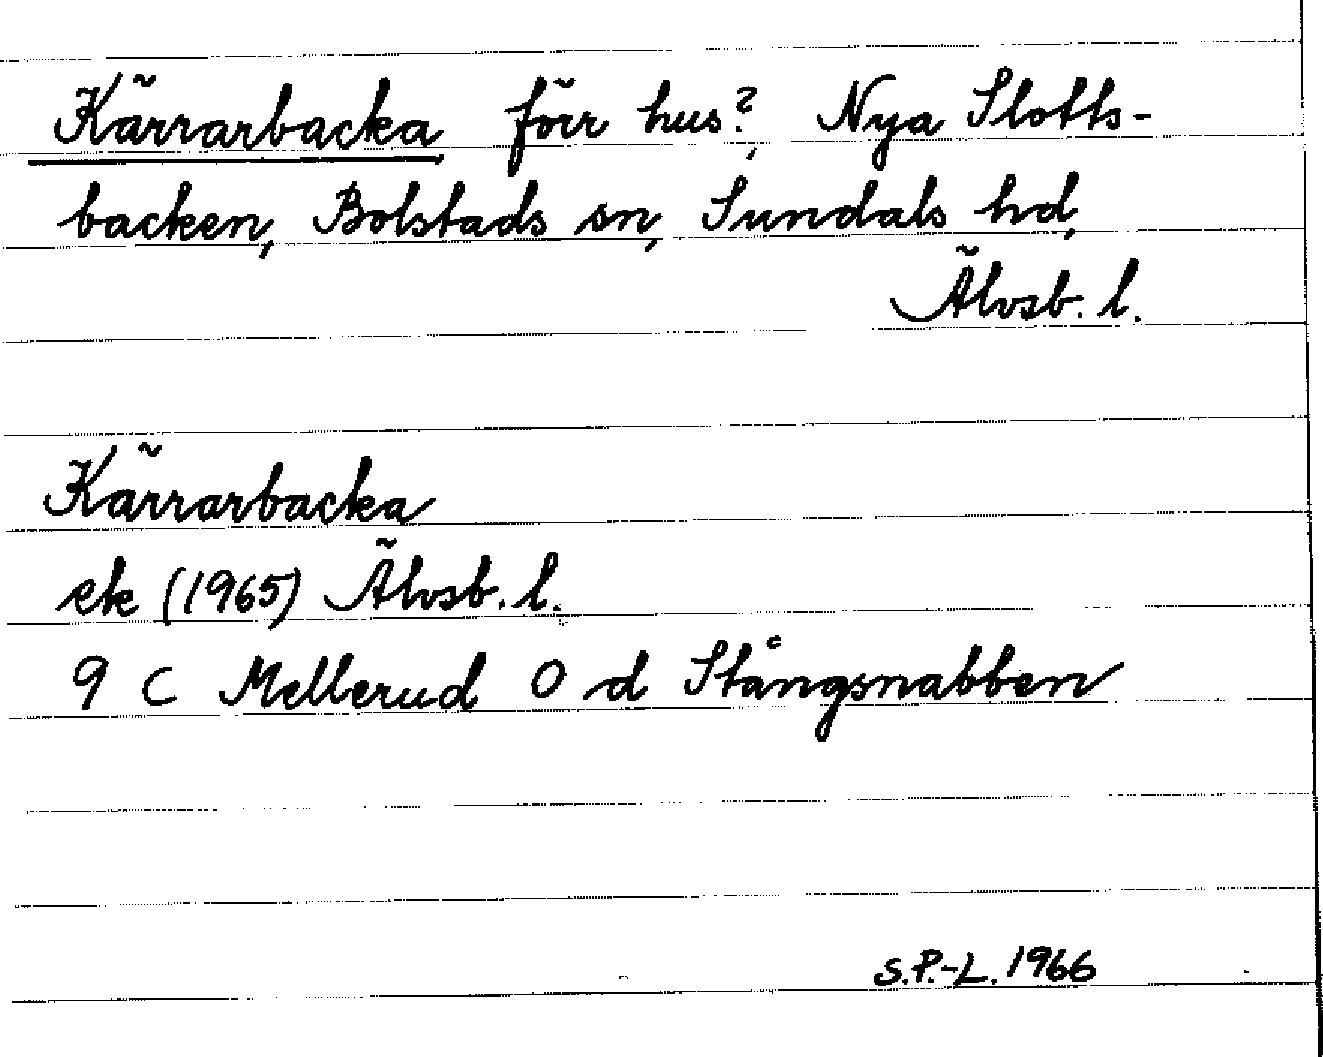 Kärrarbacka förr hus?, Nya Slotts-
backen, Bolstads sn, Sundals hd,
Älvsb. l.
Kärrarbacka
ek (1965) Älvsb. l.
9 C Mellerud O d Stångsnabben
S.P.-L. 1966